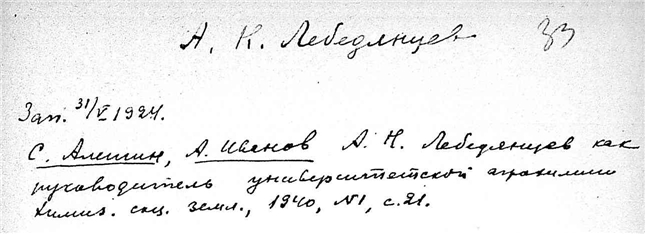 А. Н. Лебедянцев 33
Зап. 31/V 1924.
С. Алешин, А. Иванов А. Н. Лебедянцев как
руководитель университетской агрохимии
Химиз. соц. земл., 1940, №1, с. 21.